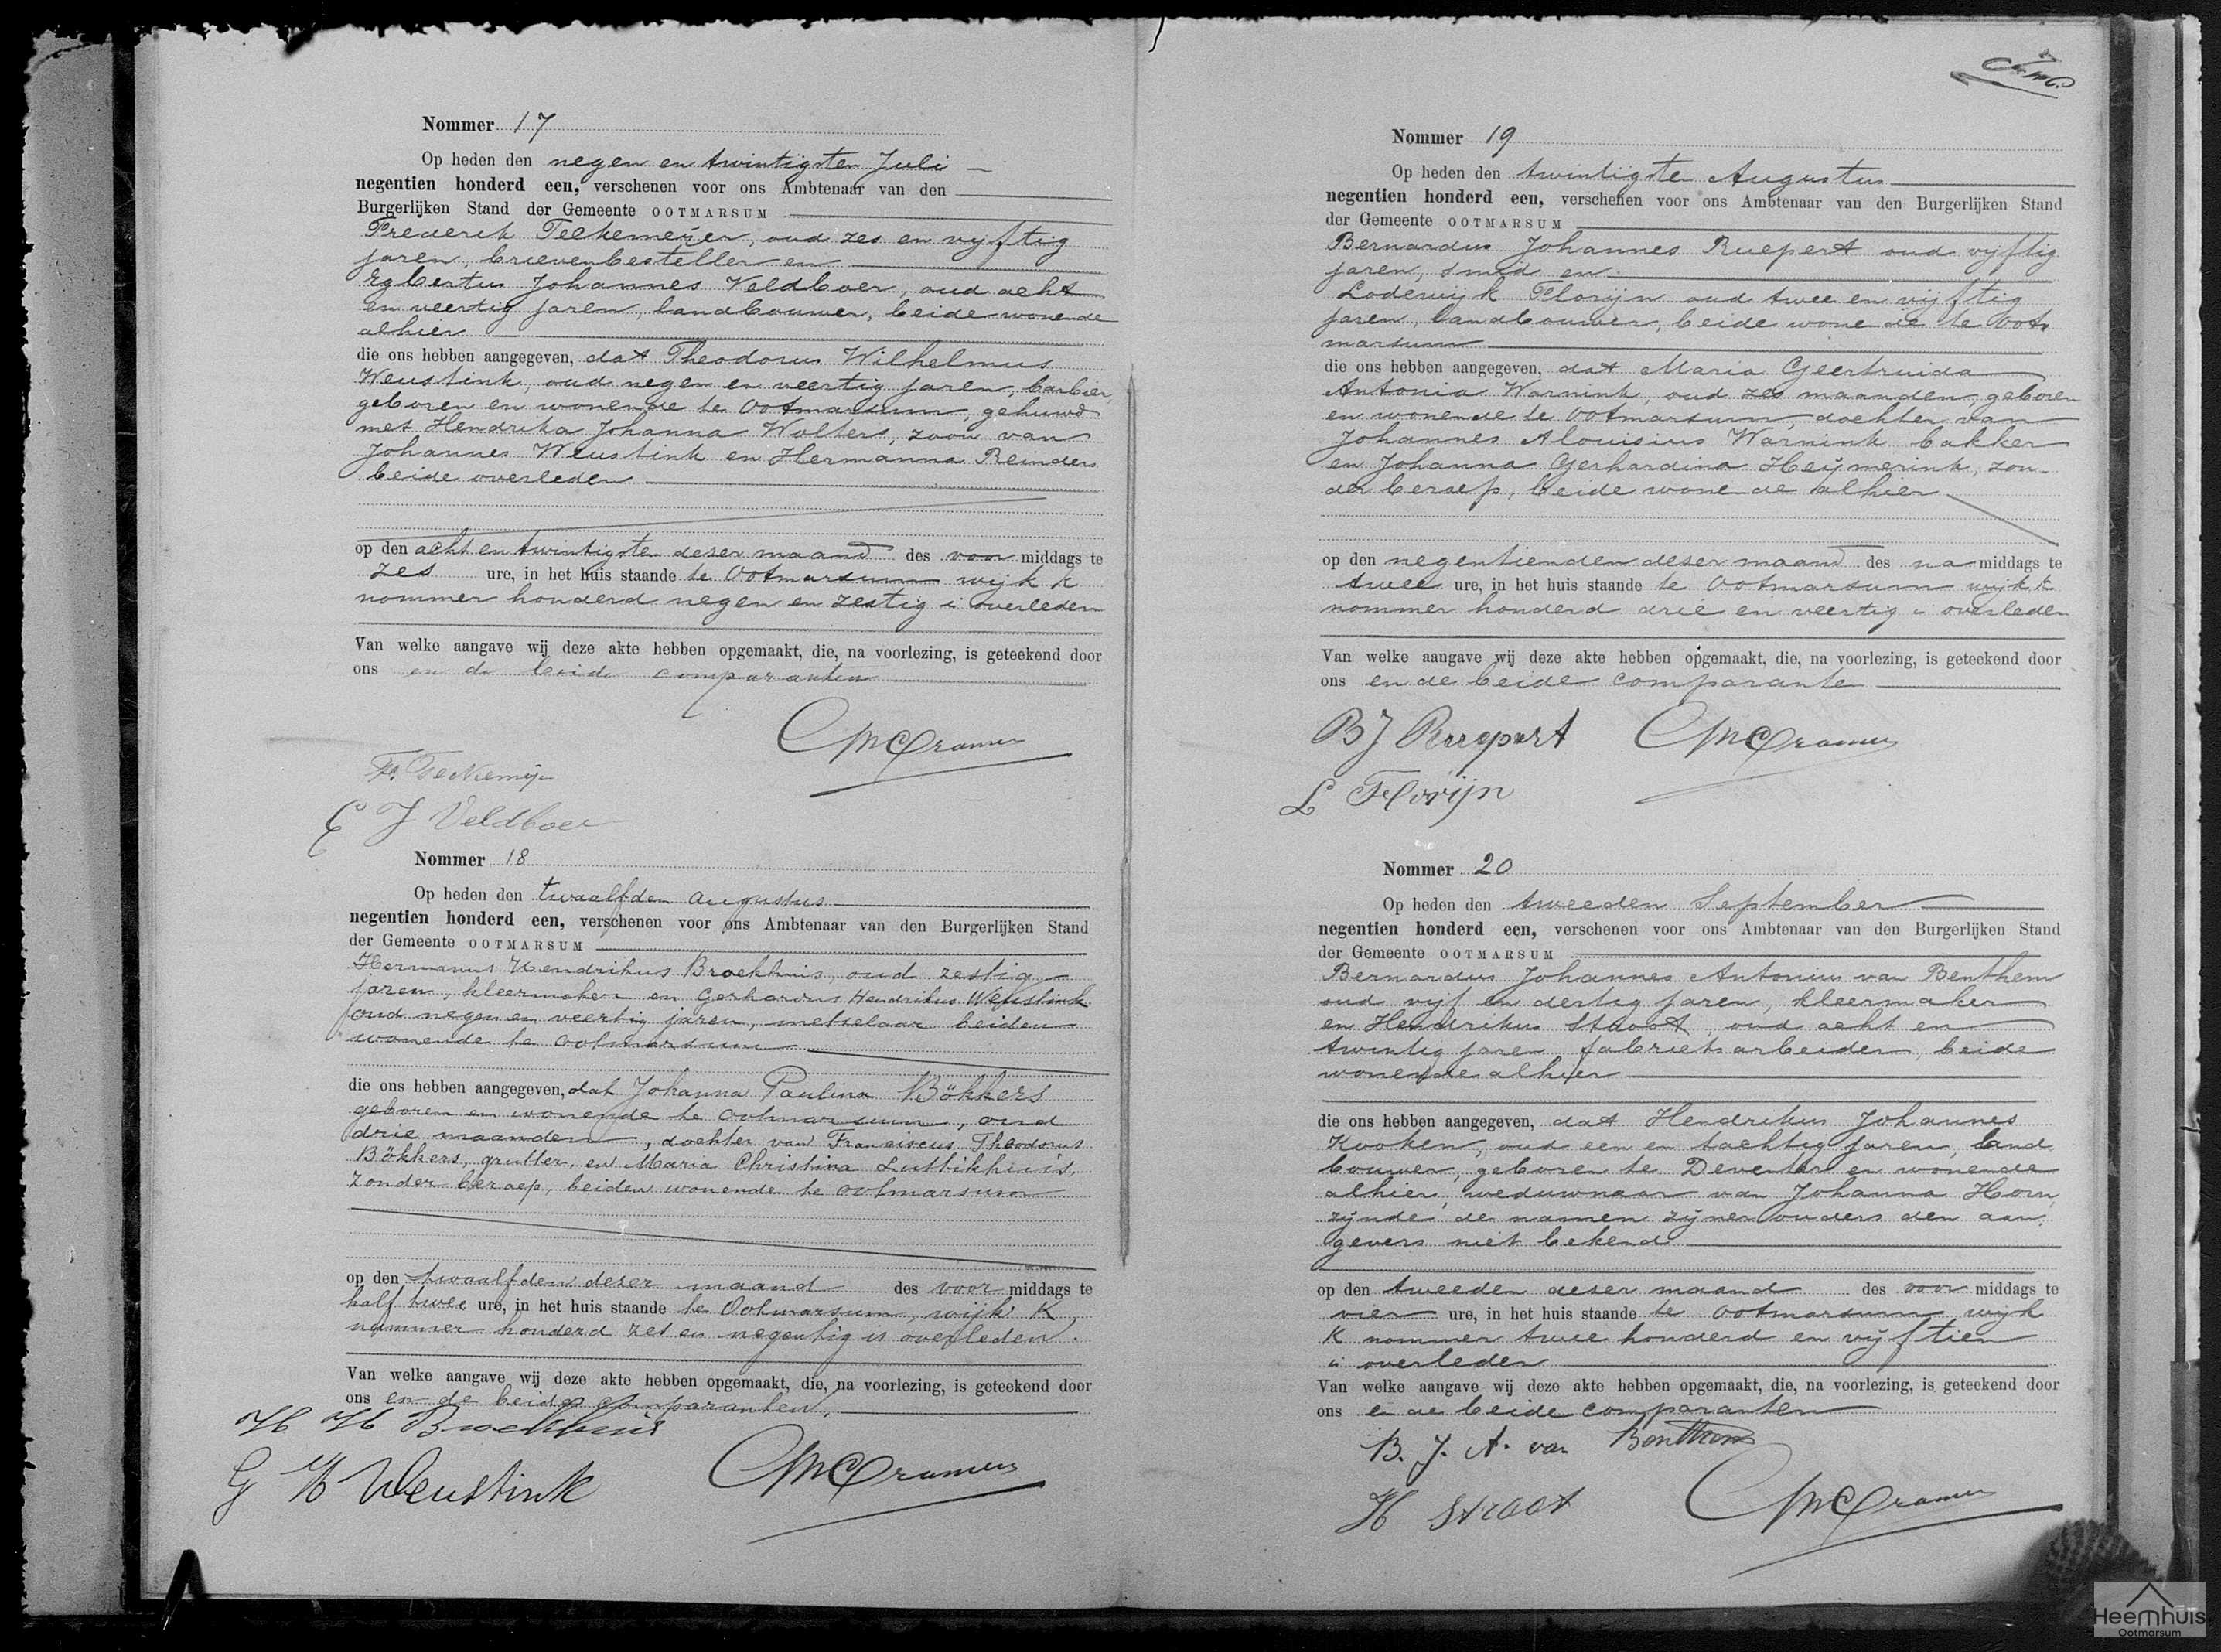 Nommer 17
Op heden den negen en twintigsten Juli
negentien honderd een, verschenen voor ons Ambtenaar van den
Burgerlijken Stand der Gemeente OOTMARSUM
Frederik Teekemeijer, oud zes en vyftig
jaren, brievenbesteller en
Egbertus Johannes Veldboer, oud acht
en veertig jaren, landbouwer, beide wonende
alhier
die ons hebben aangegeven, dat Theodorus Wilhelmus
Weustink, oud negen en veertig jaren, barbier,
geboren en wonende te Ootmarsum, gehuwd
met Hendrika Johanna Wolters, zoon van
Johannes Weustink en Hermanna Reinders
beide overleden
op den acht en twintigsten deser maand des voor middags te
zes ure, in het huis staande te Ootmarsum wyk K
nommer honderd negen en zestig is overleden
Van welke aangave wij deze akte hebben opgemaakt, die, na voorlezing, is geteekend door
ons en de beide comparanten
CMCramer
F. Teekemeijer
E J Veldboer
Nommer 18
Op heden den twaalfden Augustus
negentien honderd een, verschenen voor ons Ambtenaar van den Burgerlijken Stand
der Gemeente OOTMARSUM
Hermannus Hendrikus Broekhuis, oud zestig
jaren, kleermaker en Gerhardus Hendrikus Weustink
oud negen en veertig jaren, metselaar beiden
wonende te Ootmarsum
die ons hebben aangegeven, dat Johanna Paulina Bökkers
geboren en wonende te Ootmarsum, oud
drie maanden, dochter van Franciscus Theodorus
Bökkers, grutter, en Maria Christina Lutbikhuis,
zonder beroep, beiden wonende te Ootmarsum
op den twaalfden dezer maand des voor middags te
half twee ure, in het huis staande te Ootmarsum, wijk K,
nummer honderd zes en negentig is overleden.
Van welke aangave wij deze akte hebben opgemaakt, die, na voorlezing, is geteekend door
ons en de beide comparanten,
H H Broekhuis
G H Weustink
CMCramer
Nommer 19
Op heden den twintigste Augustus
negentien honderd een, verschenen voor ons Ambtenaar van den Burgerlijken Stand
der Gemeente OOTMARSUM
Bernardus Johannes Ruepert oud vyftig
jaren, smid en
Lodewijk Florijn oud twee en vijftig
jaren, landbouwer, beide wonende te Oot
marsum
die ons hebben aangegeven, dat Maria Geertruida
Antonia Warnink, oud zes maanden, geboren
en wonende te Ootmarsum, dochter van
Johannes Alouisius Warnink bakker
en Johanna Gerhardina Heijmerink, zon-
der beroep, beide wonende alhier
op den negentienden deser maand des na middags te
twee ure, in het huis staande te Ootmarsum wyk K
nommer honderd drie en veertig is overleden
Van welke aangave wij deze akte hebben opgemaakt, die, na voorlezing, is geteekend door
ons en de beide comparante
B J Ruepert
CMCramer
L Florijn
Nommer 20
Op heden den tweeden September
negentien honderd een, verschenen voor ons Ambtenaar van den Burgerlijken Stand
der Gemeente OOTMARSUM
Bernardus Johannes Antonius van Benthem
oud vyf en dertig jaren, kleermaker
en Hendrikus Stroot, oud acht en
twintig jaren fabrieksarbeider, beide
wonende alhier
die ons hebben aangegeven, dat Hendrikus Johannes
Kooken, oud een en tachtig jaren, land
bouwer, geboren te Deventer en wonende
alhier, weduwnaar van Johanna Horn,
zijnde de namen zijner ouders den aan
gevers niet bekend
op den tweeden deser maand des voor middags te
vier ure, in het huis staande te Ootmarsum wyk
K nommer twee honderd en vyftien
is overleden
Van welke aangave wij deze akte hebben opgemaakt, die, na voorlezing, is geteekend door
ons e de beide comparanten
B. J. A. van Benthem
H Stroot
CMCramer
Heemhuis
Ootmarsum